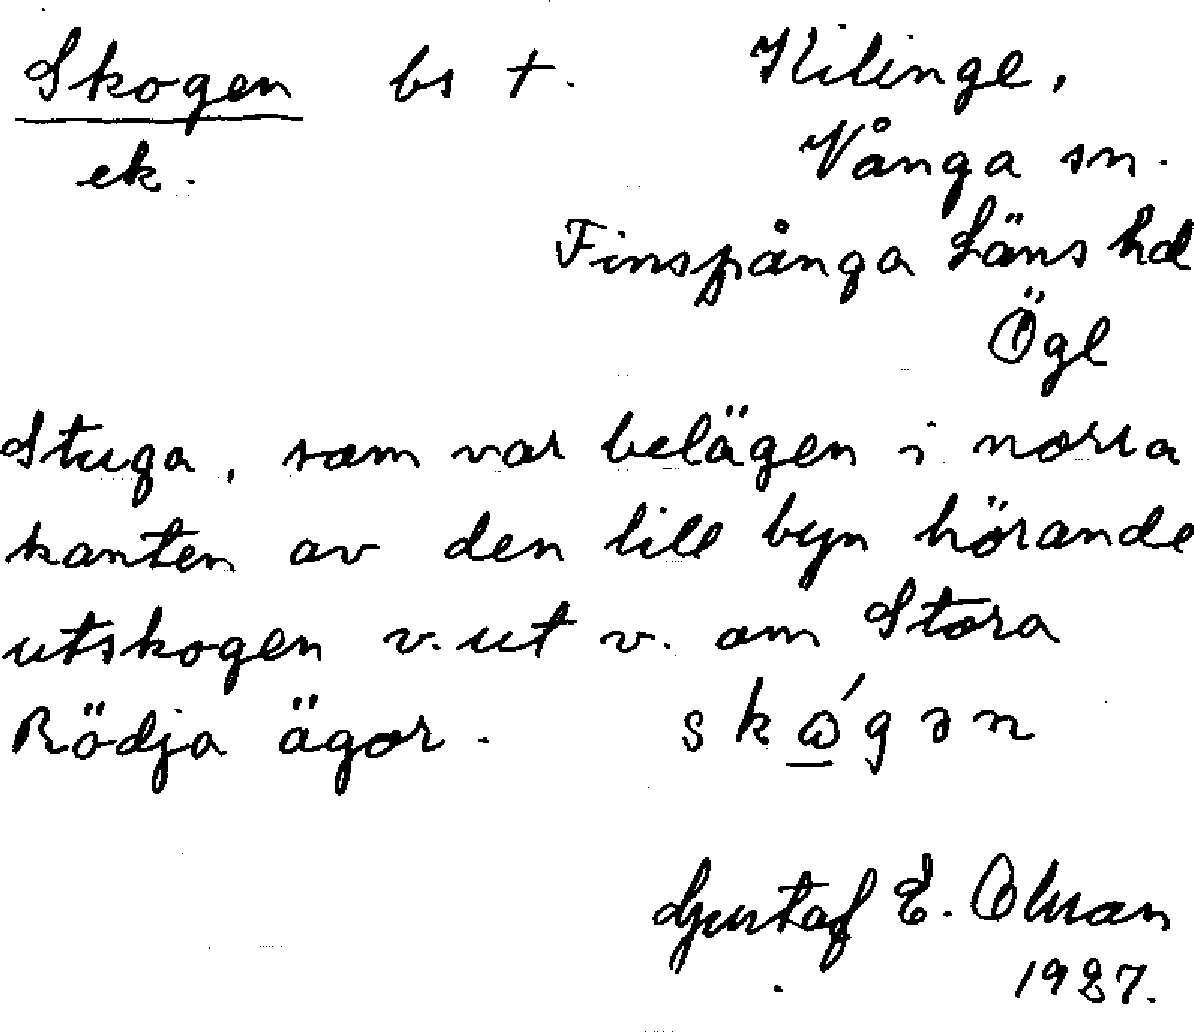 Skogen bs +. Kilinge,
ek. Vånga sn.
Finspånga Läns hd
Ögl
Stuga, som var belägen i norra
kanten av den till byn hörande
utskogen v. ut v. om Stora
Rödja ägor. skǫ́gən
Gustaf E. Olson
1927.